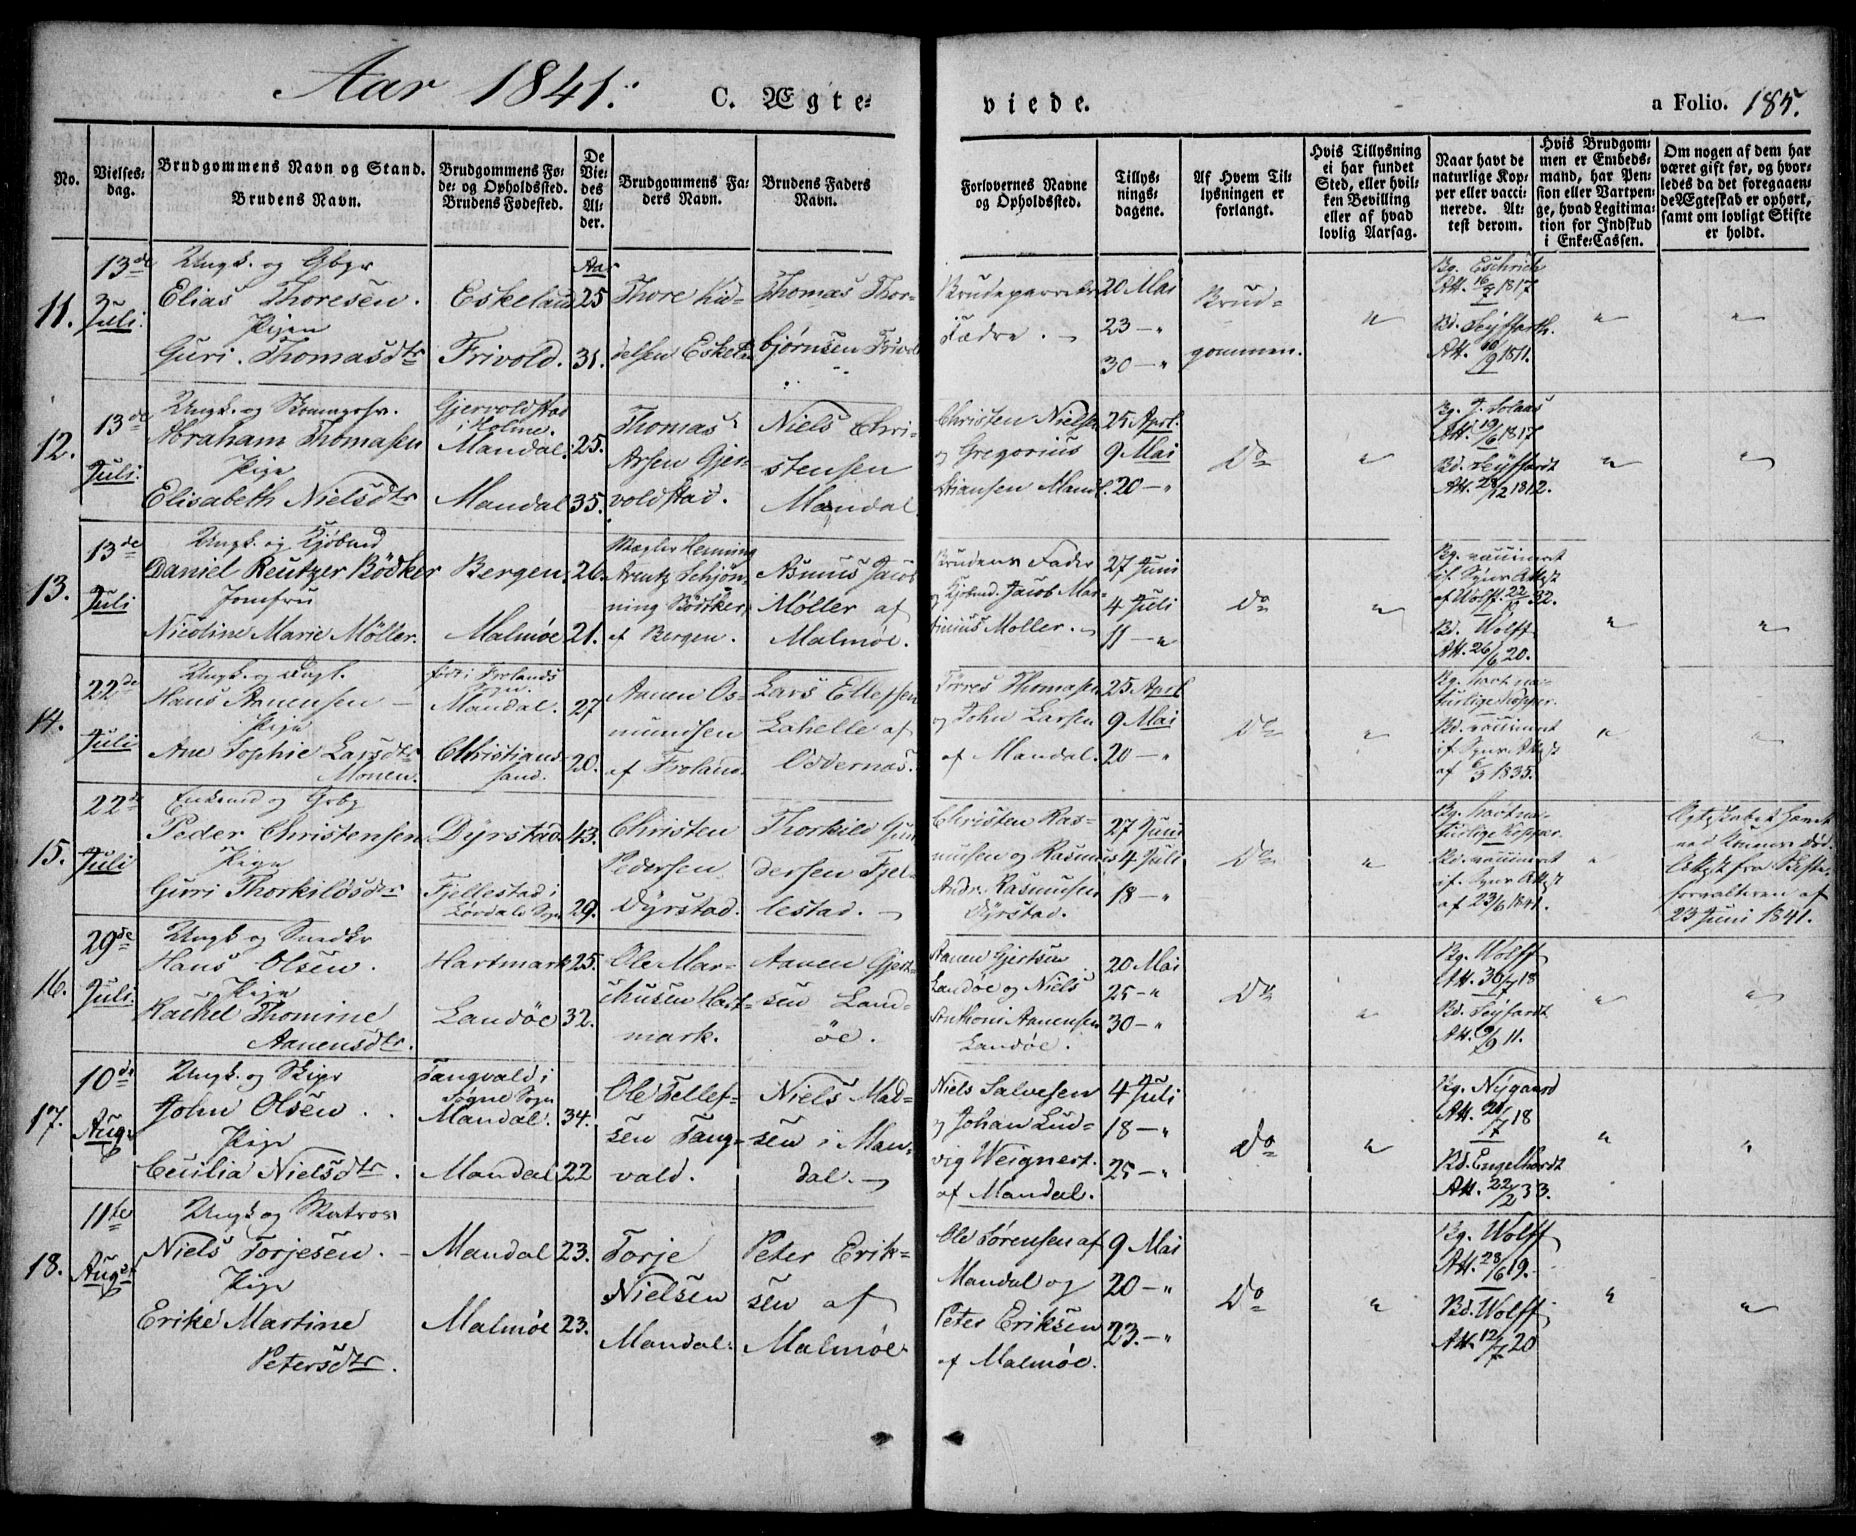 Aar 1841.
C. Ægte-
viede.
a Folio. 185.
No.
Vielses-
dag.
Brudgommens Navn og Stand.
Brudens Navn.
Brudgommens Fø-
de- og Opholdssted.
Brudens Fødested.
De
Vie-
des
Al-
der.
Brudgommens Fa-
ders Navn.
Brudens Faders
Navn.
Forlovernes Navne
og Opholdssted.
Tillys-
nings-
dagene.
Af Hvem Til-
lysningen er
forlangt.
Hvis Tillysning
ei har fundet
Sted, eller hvil-
ken Bevilling
eller af hvad
lovlig Aarsag.
Naar havt de
naturlige Kop-
per eller vacci-
nerede. At-
test derom.
Hvis Brudgom-
men er Embeds-
mand, har Pen-
sion eller Vartpen-
ge, hvad Legitima-
tion for Indskud
i Enke-Cassen.
Om nogen af dem har
været gift før, og hvor-
ledes da det foregaaen-
de Ægteskab er ophørt,
samt om lovligt Skifte
er holdt.
11.
13de
Juli.
Ungk. og Gbgr
Elias Thoresen.
Pigen
Guri Thomasdtr
Eskeland
Frivold.
Aar
25
31.
Thore Kid-
delsen Eskeland
Thomas Thor-
bjørnsen Frivold
Brudeparrets
Fædre.
20 Mai
23 — "
30 — "
Brud-
gommen.
"
Bg. Eschrich
Att. 16/7 1817
Bd. Seyffarth.
Att. 10/9 1811.
"
"
12.
13de
Juli.
Ungk. og
Abraham Thomasen
Pige
Elisabeth Nielsdtr
Gjervoldstad
i Holme.
Mandal.
Mandal
25.
35.
Thomas
Arsen Gjer-
voldstad.
Niels Chri-
stensen
Mandal.
Christen Nielsen
og Gregorius
Stiansen Mandl.
25 April.
9 Mai
20 — "
Do
"
Bg. J. Solaas
Att. 19/6 1817
Bd. Seyffardt
Att. 28/12 1812.
"
"
13.
13de
Juli
Ungk. og Kjøbmd
Daniel Reutzer Bödker
Jomfru
Nicoline Marie Möller.
Bergen.
Malmøe
26.
21.
Mægler Henning
Arentz Schjøn-
ning Bödtker,
af Bergen.
Asmus Jacob
Møller af
Malmøe.
Brudens Fader
og Kjøbmd. Jacob Mar-
tinius Moller.
27 Juni
4 Juli
11 — "
Do
"
Bg. vaccineret
if. Synr Attest
af Wolff 22/10 32.
Bd. Wolff
Att. 26/6 20.
"
"
14.
22de
Juli
Ungk. og Dagl.
Hans Aanensen
Pige
Ane Sophie Larsdtr
Monen.
født i Frolands
Sogn.
Mandal.
Christiand-
sand.
27
20.
Aanen Os-
mundsen
af Froland.
Lars Ellefsen
Lahelle af
Oddernæs.
Tørres Thomasen
og John Larsen
af Mandal.
25 April
9 Mai
20 — "
Do
"
Bg. havt na-
turlige Kopper.
Bd. vaccineret
if. Synr. Attest
af 6/3 1835.
"
"
15.
22de
Juli
Enkemd og Grbg
Peder Christensen
Pige
Gurri Thorkildsdtr
Dÿrstad
Fjellestad i
Løvdals Sogn
43.
29.
Christen
Pedersen
Dÿrstad.
Thorkild Gun-
dersen Fjel-
lestad.
Christen Ras-
musen og Rasmus
Andr. Rasmusen
Dÿrstad.
27 Juni
4 Juli
18 — "
Do
"
Bg. havt na-
turlige Kopper.
Bd. vaccineret
if. Synr Attest
af 23/6 1841.
"
Ægteskabet hævet
ved Konens Død.
Attest fra Skifte-
forvalteren af
23 Juni 1841.
16.
29de
Juli.
Ungk. og Snedkr
Hans Olsen.
Pige
Rachel Thomine
Aanensdtr.
Hartmark
Landøe
25.
32.
Ole Mar-
chusen Hart-
mark.
Aanen Gjert-
sen Land-
öe.
Aanen Gjertsen
Landøe og Niels
Anthoni Aanensen
Landøe.
20 Mai
25 — "
30 — "
Do
"
Bg. Wolff
Att. 30/7 18
Bd. Seyfardt
Att. 9/9 11.
"
"
17.
10de
Augs
Ungk. og Skipr
John Olsen.
Pige
Cecilia Nielsdtr.
Tangvald i
Søgne Sogn
Mandal.
Mandal
34.
22
Ole Tellef-
sen Tang-
vald.
Niels Mad-
sen i Man-
dal.
Niels Salvesen
og Johan Lud-
vig Weignert.
af Mandal.
4 Juli
18 — "
25 — "
Do
"
Bg. Nygaard
Att. 21/7 18
Bd. Engelhardt
Att. 22/2 33.
"
"
18.
11te
Augst
Ungk og Matros
Niels Torjesen.
Pige
Erike Martine
Petersdtr.
Mandal
Malmøe
23.
23.
Torje
Nielsen
Mandal.
Peter Erik-
sen af
Malmøe
Ole Sørensen af
Mandal og
Peter Eriksen
af Malmøe.
9 Mai
20 — "
23. — "
Do
"
Bg. Wolff
Att. 28/6 19.
Bd. Wolff
Att. 12/7 20
"
"